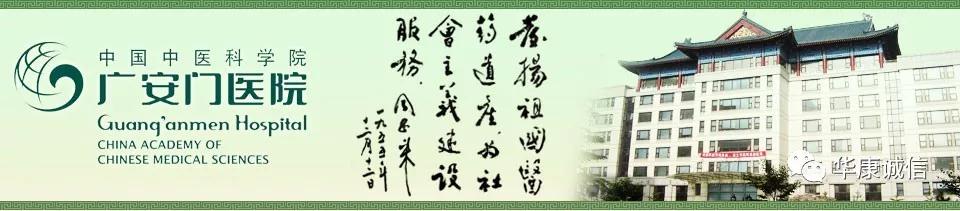 中国中医科学院
广安门医院
Guang'anmen Hospital
CHINA ACADEMY OF
CHINESE MEDICAL SCIENCES
發揚祖國醫
药遺產为社
會主義建設
服務.周恩来
一九五五年
十二月十二日
华康诚信